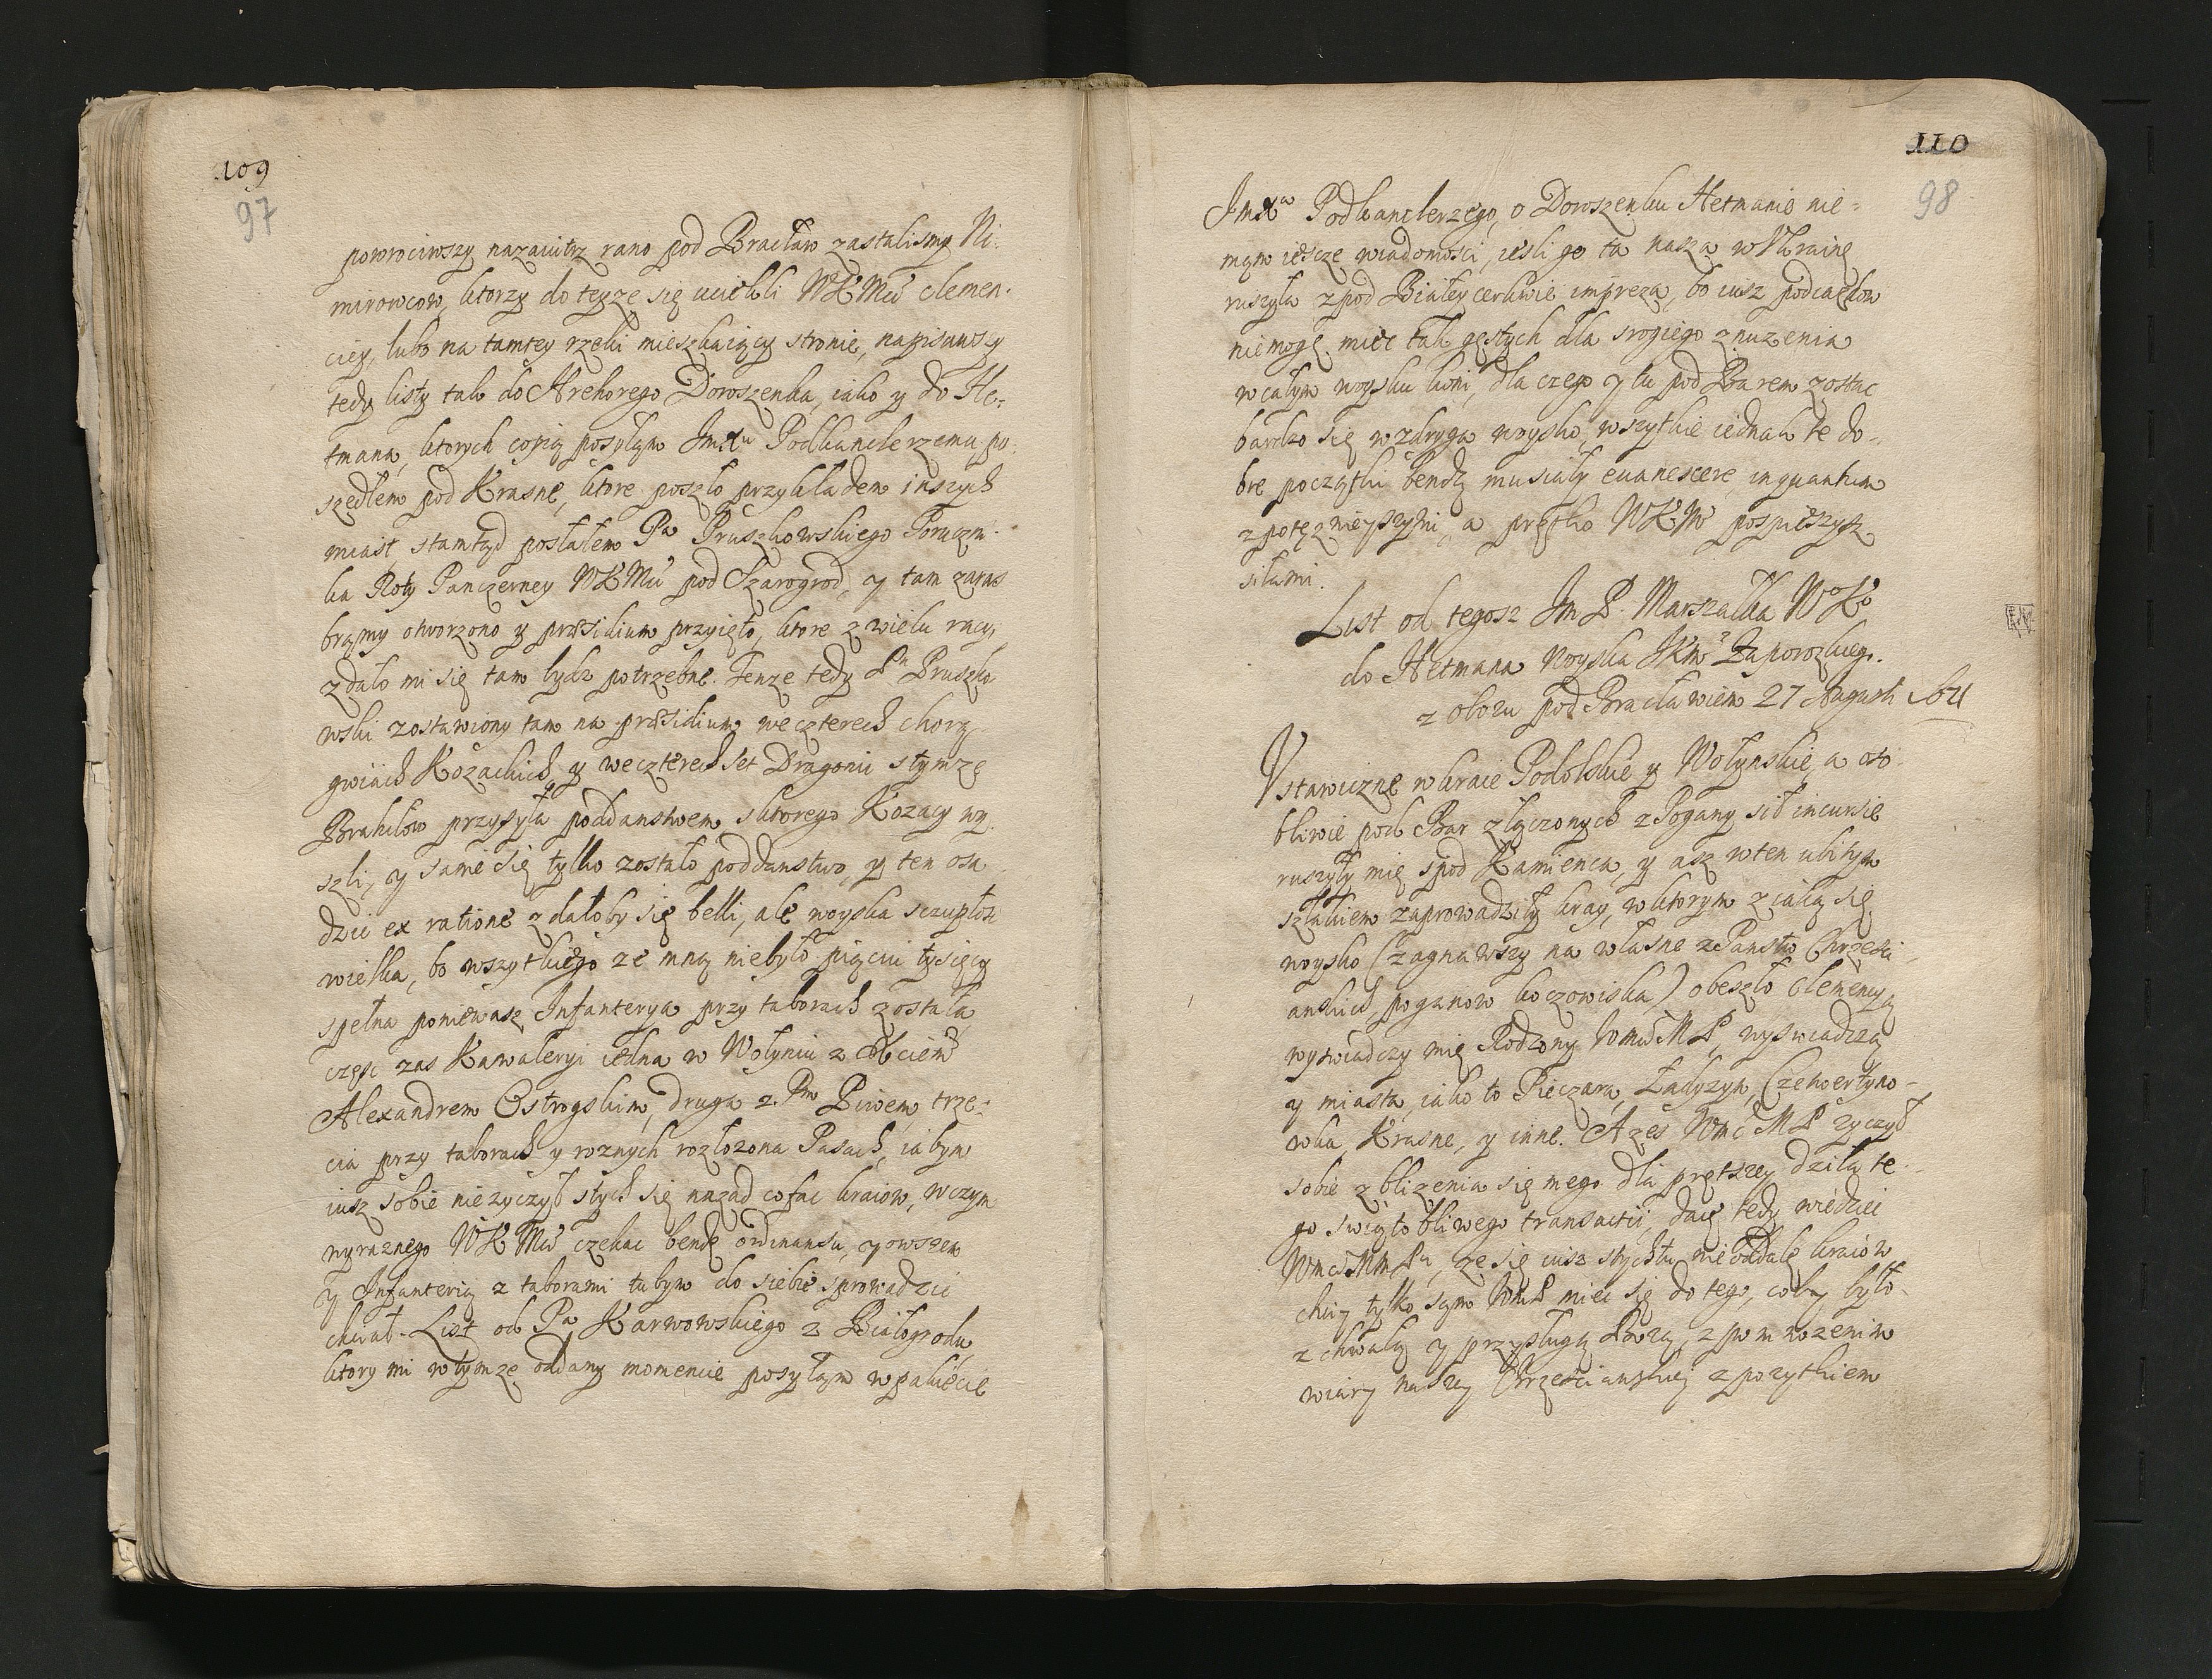 109
97
powrociwszy nazaiutrz rano pod Bracław zastalismy Ni-
mirowcow, ktorzy do teyze się uciekli WKMci clemen-
ciey, lubo na tamtey rzeki mieszkaiący stronie, napisawszy
tedy listy tak do Hrehorego Doroszenka, iako y do He-
tmana, ktorych copią posyłam Imxu Podkanclerzemu, po-
szedłem pod Krasne, ktore poszło przykładem inszych
miast, stamtąd posłałem Pa Pruszkowskiego Poruczni-
ka Roty Panczerney WKMci pod Szarogrod, y tam zaras
bramy otworzono y præsidium przyięto, ktore z wielu racyi
zdało mi się tam bydz potrzebne. Tenze tedy Pn Pruszko
wski zostawiony tam na præsidium, we czterech chorą
gwiach Kozackich, y we czterech set Dragonii stymze
Brahilow przysyła poddanstwem, sktorego Kozacy wy-
szli, y same się tylko zostało poddanstwo, y ten osa
dzic ex ratione zdałoby się belli, ale woyska szczupłosc
wielka, bo wszytkiego ze mną niebyło pięciu tysięcy
spełna poniewasz Infanterya przy taborach została
częsc zas Kawaleryi iedna w Wołyniu z Xciem
Alexandrem Ostrogskim, druga z Pm Piwem, trze-
cia przy taborach y roznych rozłozona Pasach, ia bym
iusz sobie nie zyczył stych się nazad cofac kraiow, w czym
wyraznego WKMci czekac bende ordinansu, y owszem
y Infanterią z taborami tu bym do siebie sprowadzic
chciał. List od Pa Karwowskiego z Białogrodu
ktory mi w tymze oddany momencie posyłam w pakiecie
110
98
Imxa Podkanclerzego, o Doroszenku Hetmanie nie-
mąm iescze wiadomosci, iesli go ta nasza w Ukrainę
ruszyła z pod Białey cerkwie impreza, bo iusz podiazdow
niemogę miec tak gęstych dla srogiego znuzenia
w całym woysku koni, dla czego y tu pod Barem zostac
bardzo się wzdryga woysko, wszytkie iednak te do-
bre początki bendą musiały euanescere, inquantum
z potęznieyszymi, a prętko WKM pospieszysz
siłami.
List od tegosz Im P. Marszałka Wo Ko
do Hetmana Woyska JKMci Zaporozkiego.
z obozu pod Bracławiem 27 Augusti 1671
Ustawiczne w kraie Podolskie y Wołynskie, a oso-
bliwie pod Bar złączonych z Pogany sił incursie
ruszyły mię spod Kamienca, y asz w ten ubitym
szlakiem zaprowadziły kray, w ktorym z iaką się
woysko (zagnawszy na własne z Panstw Chrzesci-
anskich poganow koczowiska) obeszło Clemencyą
wyswiadczy mię Rodzony WmciMP. wyswiadczą
y miasta, iako to Pieczara, Ładyzyn, Czetwertyno-
wka, Krasne, y inne. Azes WmcMP zyczył
sobie zblizenia się mego dla prętszey dzieła te-
go swiątobliwego transactii, daię tedy wiedziec
WmciMmPu, ze się iusz stychtu nie oddalę kraiow
chciey tylko sąm miec się do tego, coby było
z chwałą y przysługą Bozą, z pomnozeniem
wiary naszey Chrzescianskiej z pozytkiem